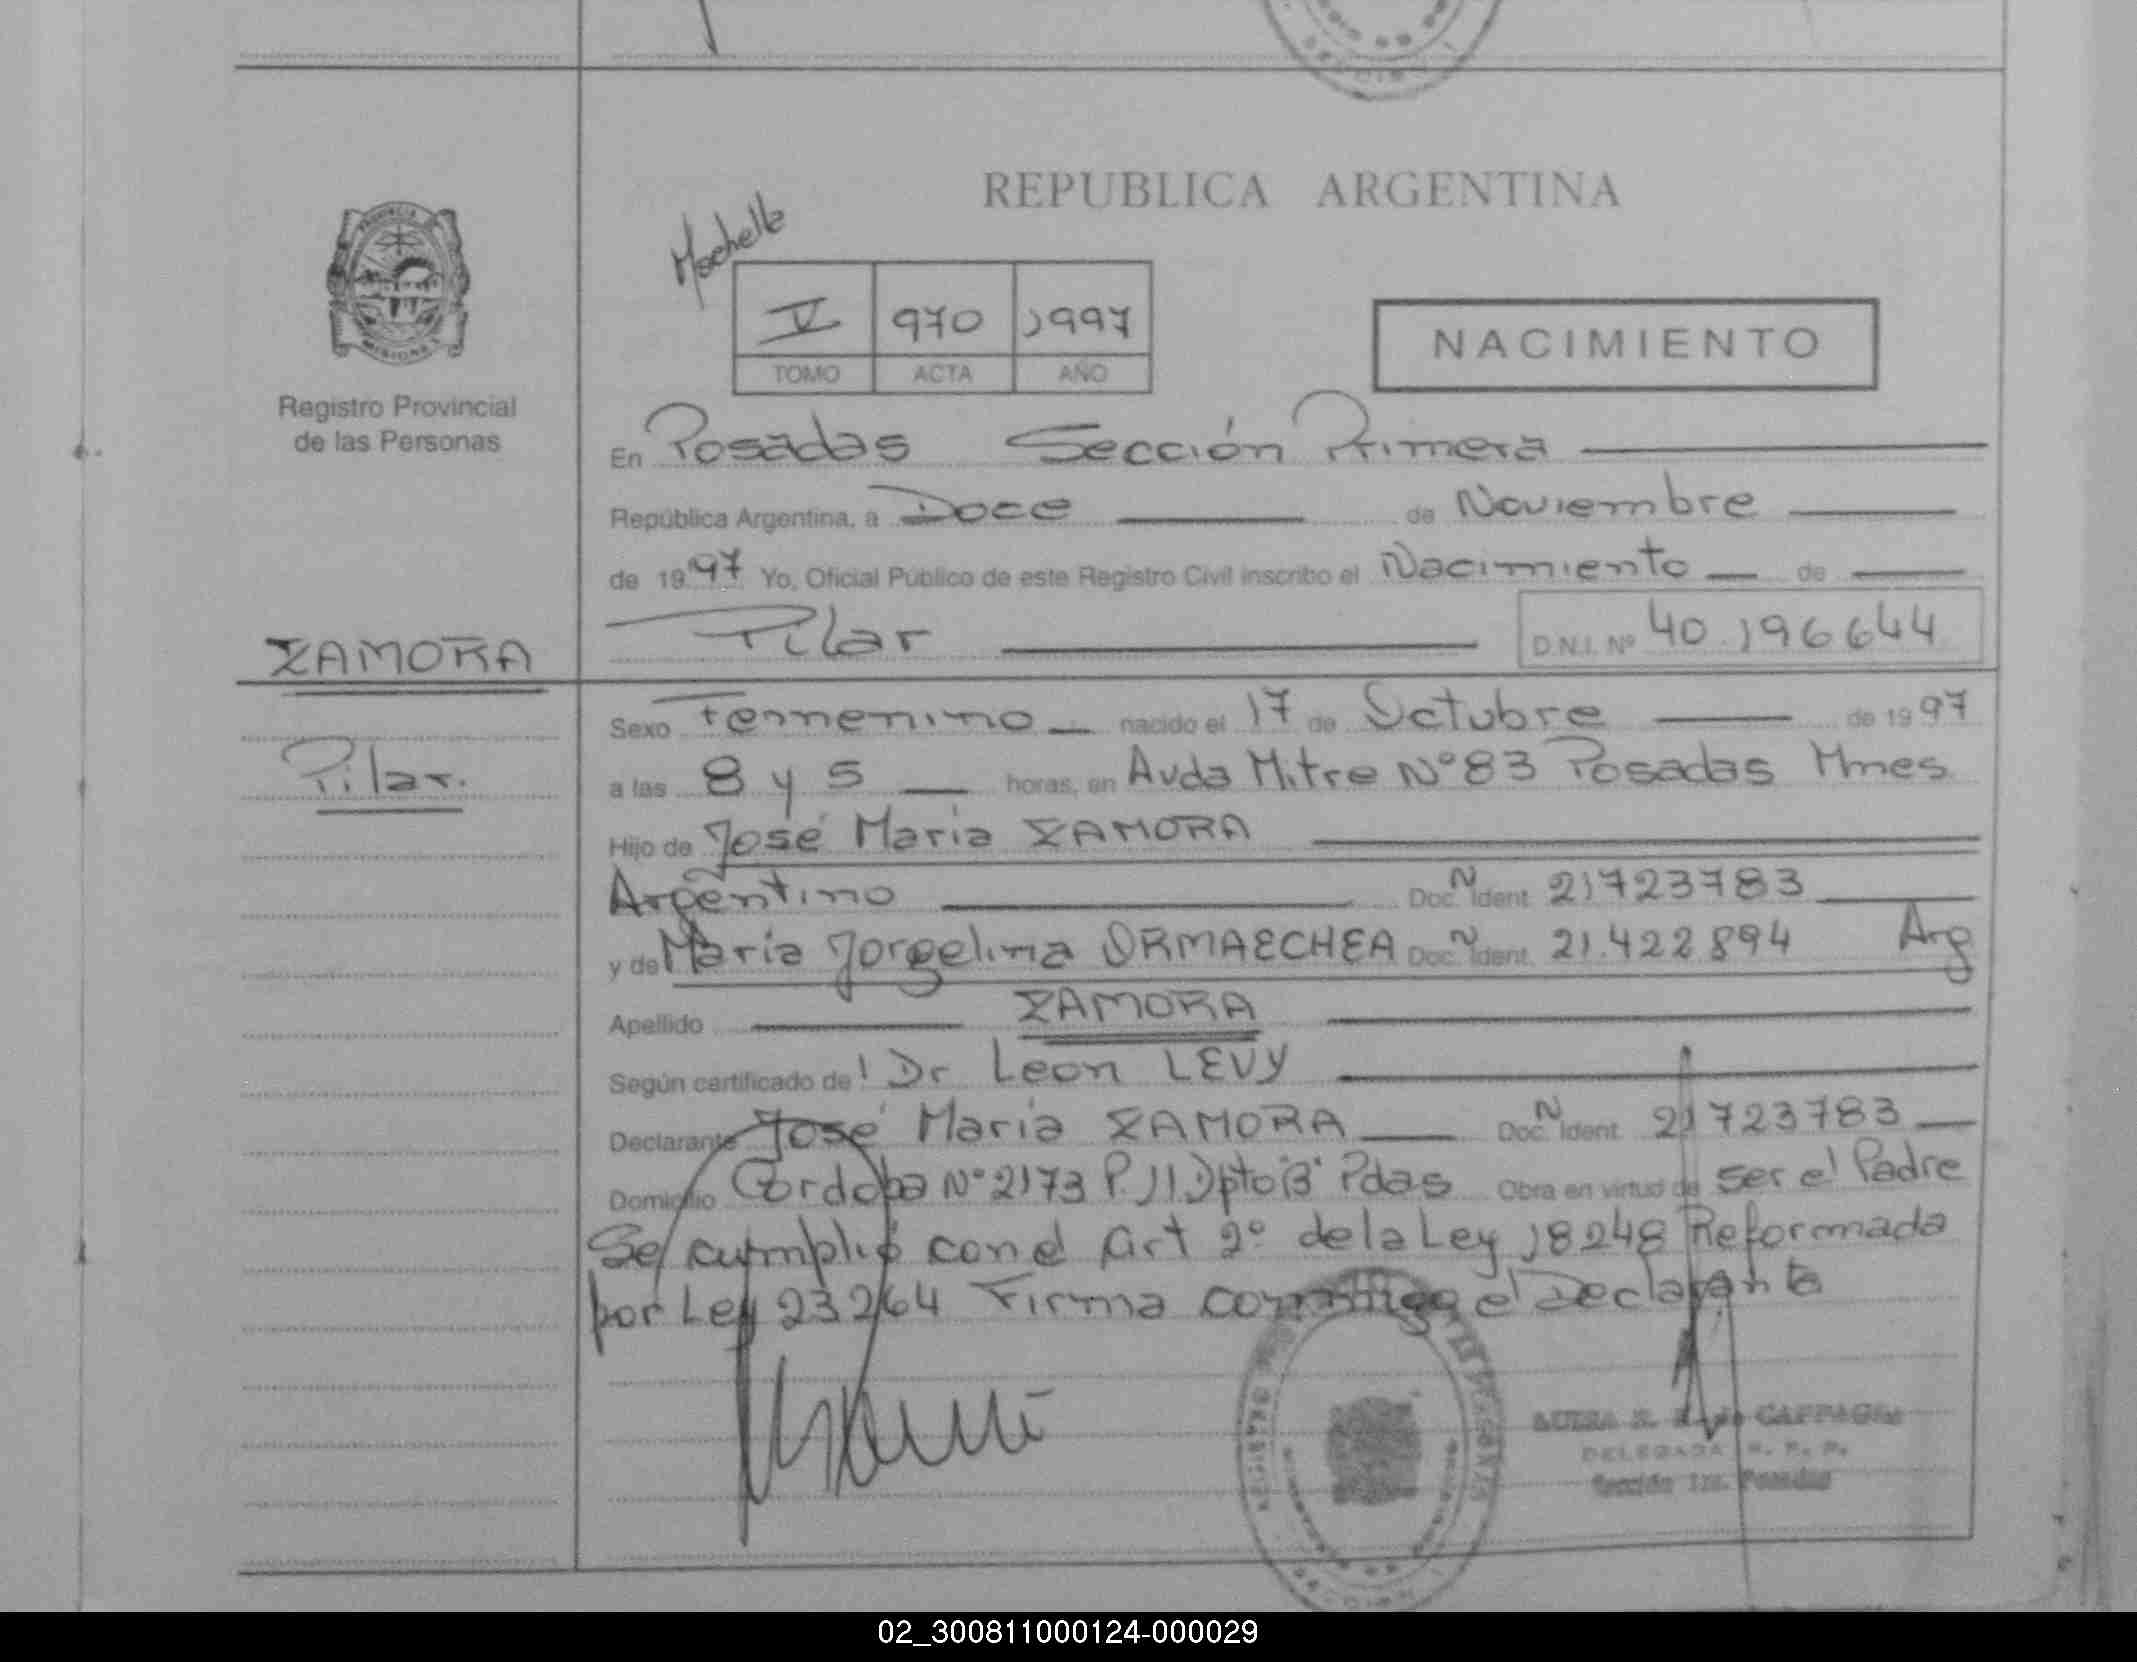 REPUBLICA ARGENTINA
PROVINCIA
MISIONES
Registro Provincial
de las Personas
V 970 1997
TOMO ACTA AÑO
NACIMIENTO
En Posadas Sección Primera
República Argentina, a Doce de Noviembre
de 1997 Yo, Oficial Público de este Registro Civil inscribo el Nacimiento de
ZAMORA
Pilar
D.N.I. Nº 40.196644
Pilar.
Sexo Femenino nacido el 17 de Octubre de 1997
a las 8 y 5 horas, en Avda Mitre Nº 83 Posadas Mnes
Hijo de José Maria ZAMORA
Argentino Doc. N Ident. 21723783
y de Maria Jorgelina ORMAECHEA Doc. N Ident. 21.422894 Arg
Apellido ZAMORA
Según certificado de: Dr Leon LEVY
Declarante José Maria ZAMORA Doc. N Ident. 21723783
Domicilio Cordoba Nº 2173 P.11 Dpto "B" Pdas Obra en virtud de ser el Padre
Se cumplió con el Art 2º de la Ley 18248 Reformada
por Ley 23264 Firma conmigo el Declarante
DELEGADA R. P. P.
Sección 1ra. Posadas
02_300811000124-000029